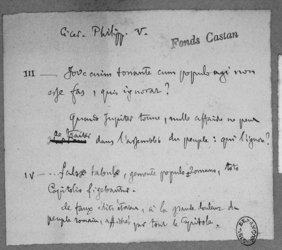 Cicer. Philipp. V.
Fonds Castan
III — Jove enim tonante cum populo agi non
esse fas, quis ignorat?
Quand Jupiter tonne, nulle affaire ne peut
se traiter dans l'assemblée du peuple : qui l'ignore?
IV — Falsæ tabulæ, gemente populo Romano, toto
Capitolio figebantur.
de faux édits étaient, à la grande douleur du
peuple romain, affichés par tout le Capitole.